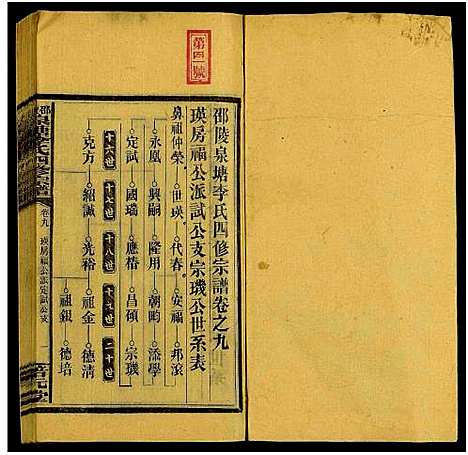 第四號
邵陵泉塘李氏四修宗譜卷之九
瑛房福公派試公支宗璣公世系表
鼻祖仲榮 世瑛 代春 安福 邦滾
永凰 興嗣 隆用 朝畇 添學
定試 國瑤 應楷 昌碩 宗璣
十六世 十七世 十八世 十九世 二十世
克方 紹誠 光裕 祖金 德清
祖銀 德培
卷九 瑛房福公派定試公支 一